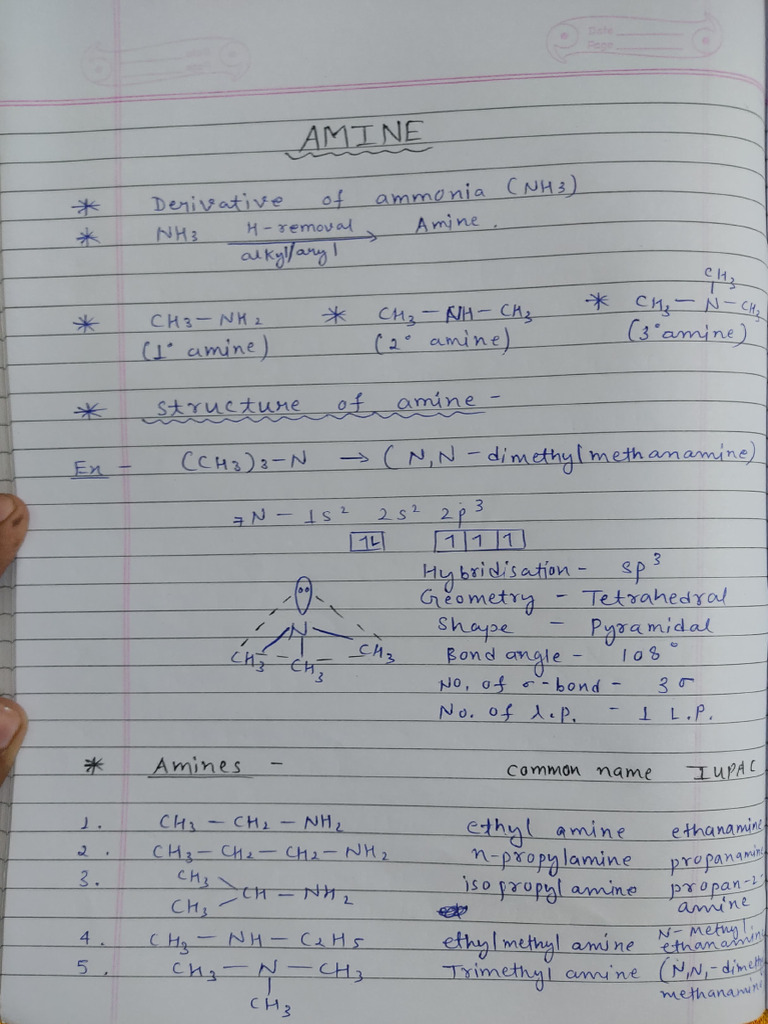 Date
Page
AMINE
* Derivative of ammonia (NH3)
* NH3 H-removal Amine.
alkyl/aryl
CH3
* CH3 – NH2 * CH3 – NH – CH3 * CH3 – N – CH3
(1° amine) (2° amine) (3° amine)
* structure of amine –
Ex – (CH3)3 – N → (N,N – dimethylmethanamine)
⇒ N – 1s² 2s² 2p³
1L 1 1 1
Hybridisation – sp³
Geometry – Tetrahedral
N Shape – Pyramidal
CH3 CH3 CH3 Bond angle – 108°
No. of σ-bond – 3σ
No. of l.p. – 1 L.P.
* Amines – common name IUPAC
1. CH3 – CH2 – NH2 ethyl amine ethanamine
2. CH3 – CH2 – CH2 – NH2 n-propylamine propanamine
3. CH3 CH – NH2 isopropyl amine propan-2-
CH3 amine
4. CH3 – NH – C2H5 ethylmethyl amine N-methyl ethanamine
5. CH3 – N – CH3 Trimethyl amine (N,N,-dimeth
CH3 methanamin